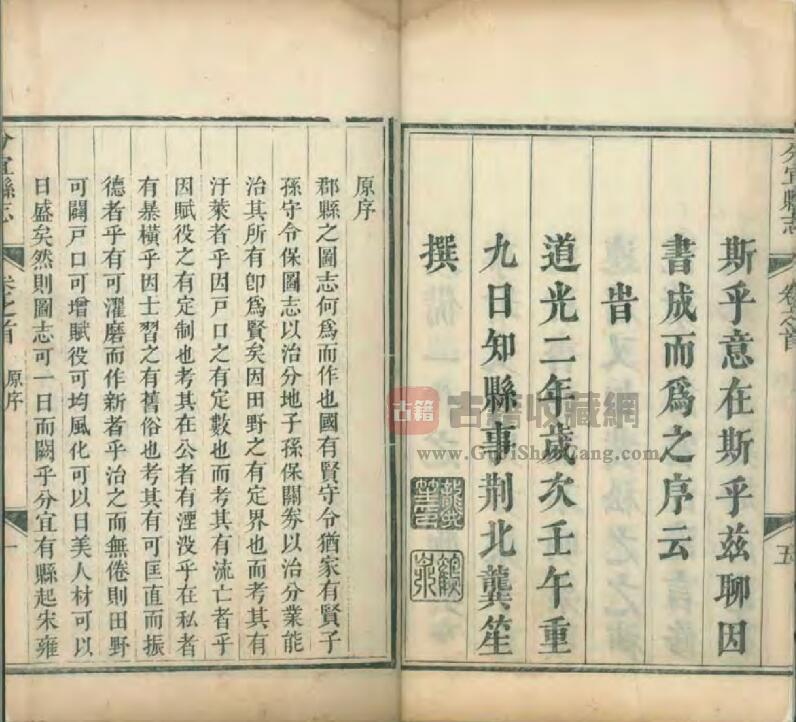 分宜縣志
卷之首
五
斯乎意在斯乎茲聊因
書成而爲之序云
旹
道光二年歲次壬午重
九日知縣事荆北龔笙
撰
古籍
古籍收藏網
www.GuJiShouCang.com
原序
郡縣之圖志何爲而作也國有賢守令猶家有賢子
孫守令保圖志以治分地子孫保關券以治分業能
治其所有卽爲賢矣因田野之有定界也而考其有
汙萊者乎因戸口之有定數也而考其有流亡者乎
因賦役之有定制也考其在公者有湮没乎在私者
有暴橫乎因士習之有舊俗也考其有可匡直而振
德者乎有可濯磨而作新者乎治之而無倦則田野
可闢戸口可增賦役可均風化可以日美人材可以
日盛矣然則圖志可一日而闕乎分宜有縣起宋雍
分宜縣志
卷之首
原序
一